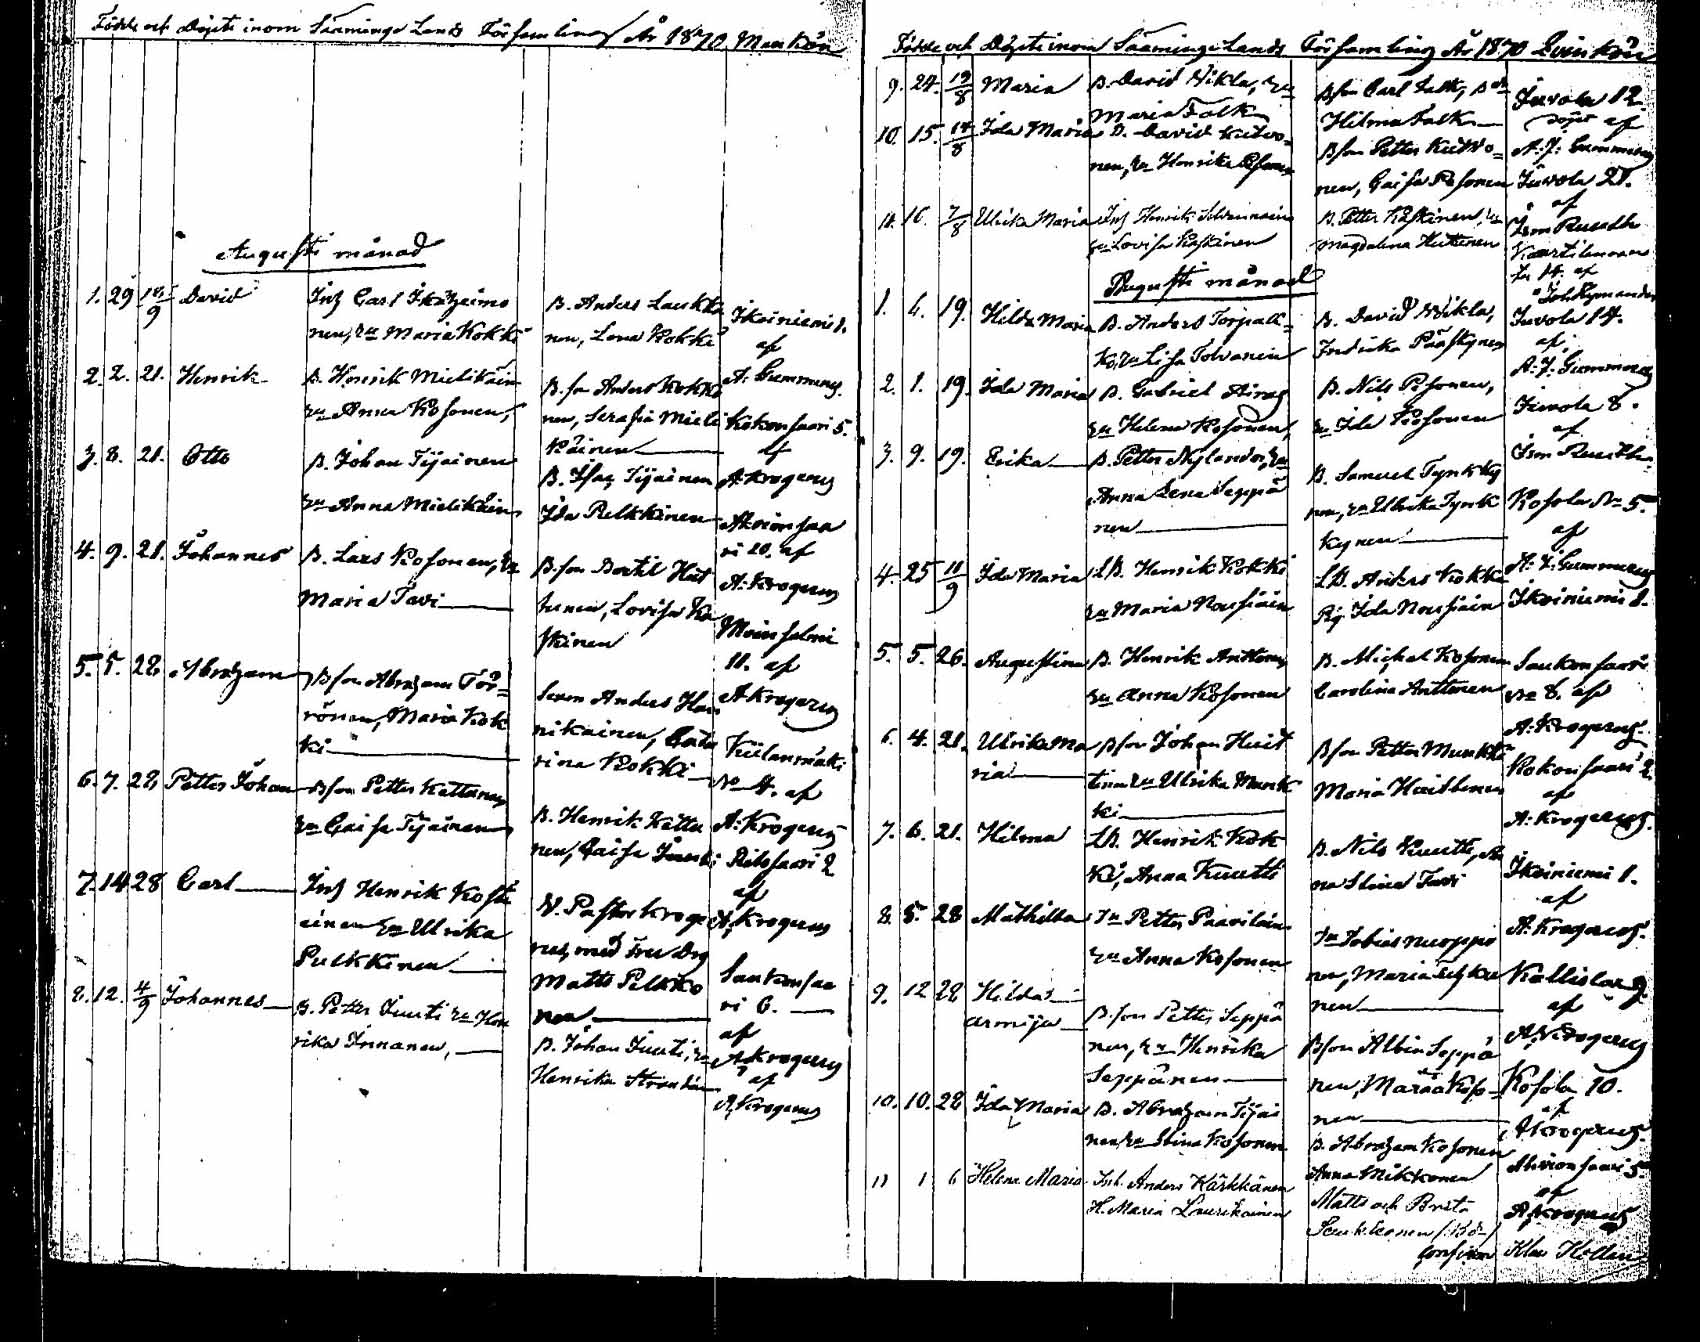 Födde och Döpte inom Sääminge Lands Församling År 1870 Mankön
Augusti månad
1. 29 18/9 David
Inh Carl Ikäheimo
nen, hu Maria Kokki
B. Anders Laukka
nen, Lena Kokki
Ikoiniemi 1.
af
A. Gummerus
2. 2. 21. Henrik
B. Henrik Mielikäin
hu Anna Kosonen,
B. son Anders Kokko
nen, Serafia Mieli
käinen
Kokonsaari 5.
af
A. Krogerus
3. 8. 21. Otto
B. Johan Tijainen
hu Anna Mielikäin
B. Isac Tijainen
Ida Pelkkinen
Ahvionsaa
ri 20. af
A. Krogerus
4. 9. 21. Johannes
B. Lars Kosonen, hu
Maria Tavi
B. son Bertil Hut
tunen, Lovisa Ka
skinen
Moinsalmi
11. af
A. Krogerus
5. 5. 28 Abraham
B son Abraham Tör=
rönen, Maria Kok
ki
Sexm Anders Han
nikainen, Cata
rina Kokki
Kiilanmäki
No 4. af
A. Krogerus
6. 7. 28 Petter Johan
B son Petter Kettunen
hu Caisa Tijainen
B. Henrik Kettu
nen, Caisa Juuti
Ritosaari 2
af
A. Krogerus
7. 14 28 Carl
Inh Henrik Kosti
ainen hu Ulrika
Pulkkinen
V. Pastor Kroge
rus, med Fru Drg
Matts Pelkko
nen
Sankonsaa
ri 6.
af
A. Krogerus
8. 12. 4/9 Johannes
B. Petter Juuti hu Hen
rika Innanen,
B. Johan Juuti, hu
Henrika
af
A. Krogerus
Födde och Döpte inom Sääminge Lands Församling År 1870 Qvinkön
9. 24. 19/8 Maria
B. David Nikla, hu
Maria Falk
B son Carl Falk, B dr
Hilma Falk
Juvola 12
döpt af
A. J. Gummerus
10. 15. 14/8 Ida Maria
B. David Kutvo=
nen, hu Henrika Pesonen
B son Petter Kutvo=
nen, Caisa Pesonen
Juvola 21.
af
11. 16. 7/8 Ulrika Maria
Inh Henrik Silvennoinen
hu Lovisa Kaskinen
B. Petter Kaskinen, hu
Magdalena Huttunen
Augusti månad
1. 6. 19. Hilda Maria
B. Anders Torpak=
ko, hu Lisa Tolvanen
B. David Nikla,
Fredrika Pääskynen
Juvola 14.
af
A. J. Gummerus
2. 1. 19. Ida Maria
B. Gabriel Airas
hu Helena Kosonen,
B. Nils Pesonen,
hu Ida Kosonen
Juvola 8.
af
3. 9. 19. Erika
B. Petter Nylander, hu
Anna Lena Seppä
nen
B. Samuel Tynkky
nen, hu Ulrika Tynk
kynen
Kosola No 5.
af
A. J. Gummerus
4. 25 11/9 Ida Maria
LB. Henrik Kokki
hu Maria Nousiain
LB. Anders Kokki
Pg. Ida Nousiain
Ikoiniemi 1.
5. 5. 26. Augustina
B. Henrik Anttonen
hu Anna Kosonen
B. Michel Kosonen
Carolina Anttonen
Sankonsaari
No 8. af
A. Krogerus
6. 4. 21. Ulrika Ma
ria
B son Johan Huit
tinen hu Ulrika Munk
ki
B son Petter Munkki
Maria Huittinen
Kokonsaari 2.
af
A. Krogerus.
7. 6. 21. Hilma
LB. Henrik Kok
ki, Anna Kuutti
B. Nils Kuutti, An
na Stina Tavi
Ikoiniemi 1.
af
A. Krogerus.
8. 5. 28 Mathilda
Petter Paavilain
hu Anna Kosonen
Tobias Nuoppo
nen, Maria
nen
Kallislax 9.
af
A. Krogerus
9. 12 28 Hilda
Armija
B. son Petter Seppä
nen, hu Henrika
Seppänen
B son Albin Seppä
nen, Maria Koso-
nen
Kosola 10.
af
A. Krogerus
10. 10. 28 Ida Maria
B. Abraham Tijai
nen hu Stina Kosonen
B. Abraham Kosonen
Anna Mikkonen
Ahvionsaari 5.
af
A. Krogerus
11 1 6 Helena Maria
Inh. Anders Kärkkäinen
H. Maria Laurikainen
Matts och Brita